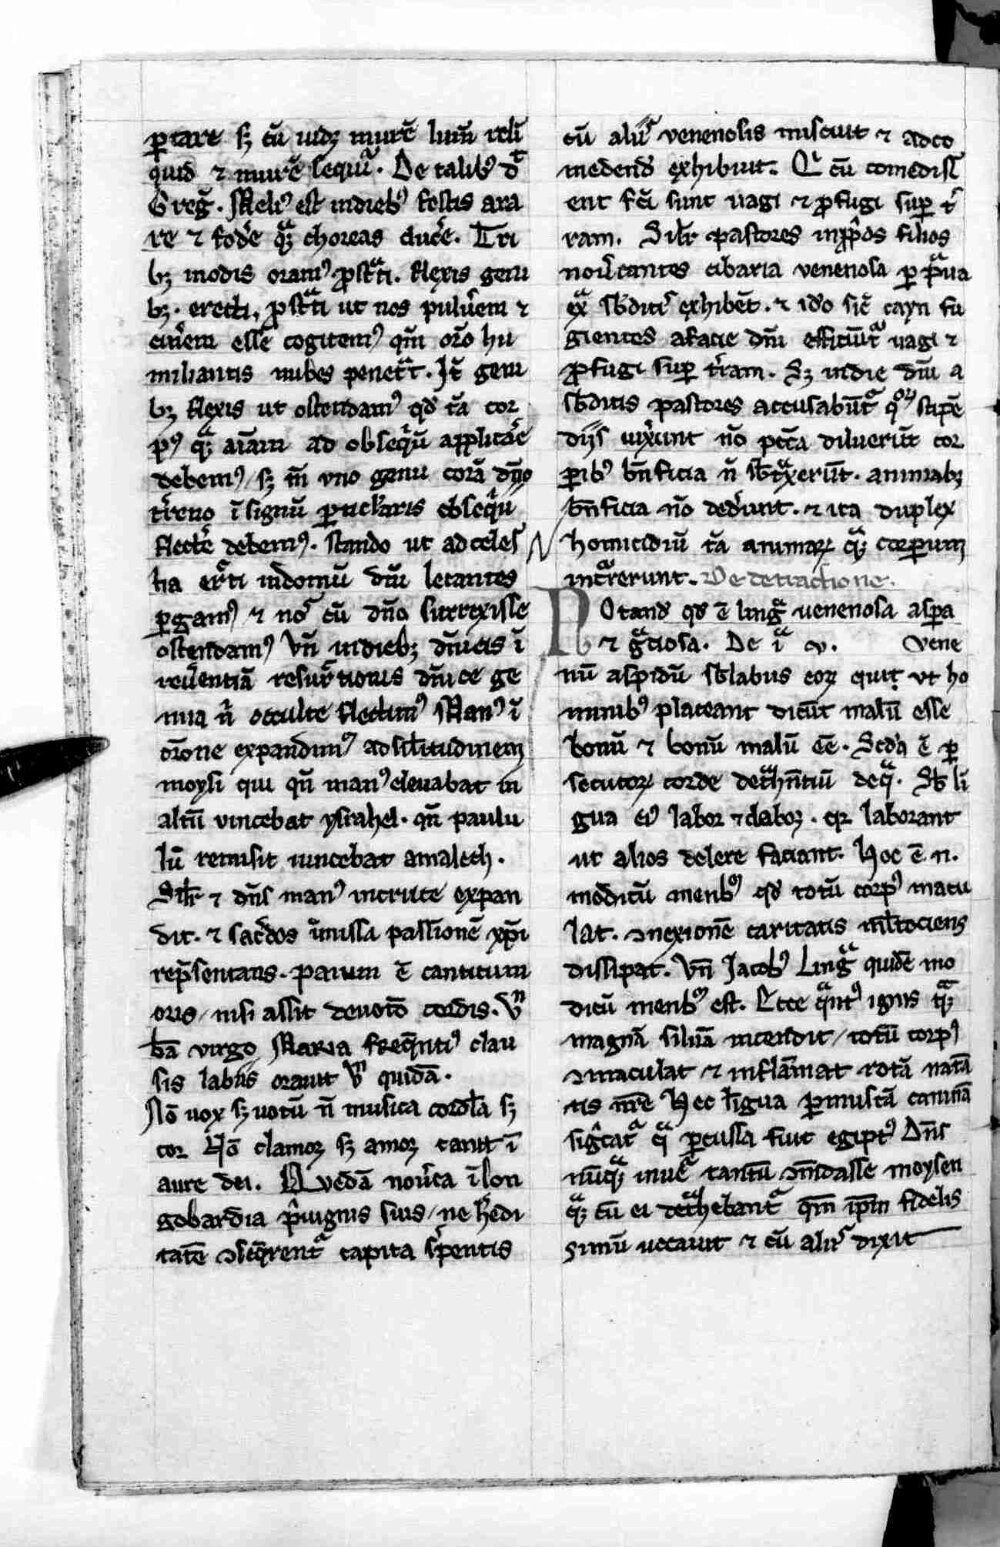 ꝑtare sꝫ cū uidꝫ murē lumē reli
quid ⁊ murē sequit᷑. De talibꝰ d͛
Greg̃. Meliꝰ est in diebꝰ festis ara
re ⁊ fodͤe qᵃꝫ choreas ducͤe. Tri
bꝫ modis oramꝰ ꝓstᵃti. flexis genu
bꝫ. erecti, ꝓstᵃti ut nos puluͤem ⁊
cinͤem esse cogitemꝰ qm̄ oro͂ hu
miliantis nubes penetᵃt. Jt̄ genu
bꝫ flexis ut ostendamꝰ qd̓ tā cor
pꝰ qᵃꝫ aīam ad obseqͥū applicāe
debemꝰ / sꝫ tn̄ uno genu corā dn̄o
tͤreno ī signū ꝑticƚaris obseqͥu
flectͤe debemꝰ. stando ut ad celes
tia erͨti in domū dn̄i letantes
ꝑgamꝰ ⁊ nos cū dn̄o surrexisse
ostendamꝰ Vn̄ in diebꝫ dn̄icis ī
reuͤentiā resurͨtionis dn̄ice ge
nua n̄ occulte flectimꝰ Manꝰ ī
or̄one expandimꝰ ad sil̓itudinem
moysi qui qn̄ manꝰ eleuabat in
altū vincebat ysrahel. qn̄ paulu
lū remisit uincebat amalech.
Sil̓r ⁊ dn̄s manꝰ in cruce expan
dit. ⁊ sacͤdos in missa passionē xp̄i
rep̄sentans. parum ē canticum
oris / nisi assit deuotō cordis. Vn̄
bā virgo Maria freq̄ntiꝰ clau
sis labiis orauit Vn̄ quidā.
Nō uox sꝫ uotū n̄ musica cordƚa sꝫ
cor Nō clamor sꝫ amor canit ī
aure dei. Quedā nouͤca ī lon
gobardia pͥuignis suis / ne hͤedi
tatē ꝯseq̄rentᷣ capita sͤpentis
cū aliis venenosis miscuit ⁊ ad co
medendū exhibuit. Qͥ cū comediss
ent fc̄i sunt uagi ⁊ ꝓfugi suꝑ tͤ
ram. Sil̓r pastores inpp̄os filios
nouͤcantes cibaria venenosa ꝑ pᵃua
exᵃ sbditis exhibēt. ⁊ ido̓ sic̄ cayn fu
gientes a facie dn̄i efficiūtᷣ uagi ⁊
ꝓfugi suꝑ tͤram. Sꝫ in die dn̄i a
sbditis pastores accusabūtᷣ qͦꝝ stipē
diis uixͤunt nō pcc̄a diluerūt cor
ꝑibꝰ bn̄ficia n̄ sbtᵃxerūt. animabꝫ
bn̄ficia nō dedͤunt. ⁊ ita duplex
homicidiū tā animaꝝ qᵃꝫ corꝑum
incͬrerunt. De detractione.
Notandū qd̓ ē lingᵃ venenosa asꝑa
⁊ gᵃciosa. De iᵃ ꝟ. Vene
nū aspidū sb labiis eoꝝ qui ut ho
minibꝰ placeant dicūt malū esse
bonū ⁊ bonū malū eē. Scd̓a ē ꝑ
secutoꝝ corde detᵃhentiū deqᵃ. Sb li
gua eiꝰ labor ⁊ doloꝝ. qꝛ laborant
ut alios delere faciant. Hoc ē n.
modicū menbꝝ qd̓ totū corpꝰ macu
lat. ꝯnexionē caritatis ml̓tociens
dissipat. Vn̄ Jacobꝰ Lingᵃ quidē mo
dicū menbꝝ est. Ecce qᵃntꝰ ignis qᵃꝫ
magnā siluā incendit / totū corpꝰ
ꝯmaculat ⁊ inflāmat rotā natīᵃ
tis nr̄e Hec līgua ꝑ muscā caninā
sigͨatᷣ qᵃ ꝑcussa fuit egiptꝰ Dn̄s
nūqᵃꝫ inueᷣ tantū ꝯmdasse moysen
qᵃꝫ cū ei detᵃhebantᷣ qm̄ ipm̄ fidelis
simū uocauit ⁊ cū aliis dixit